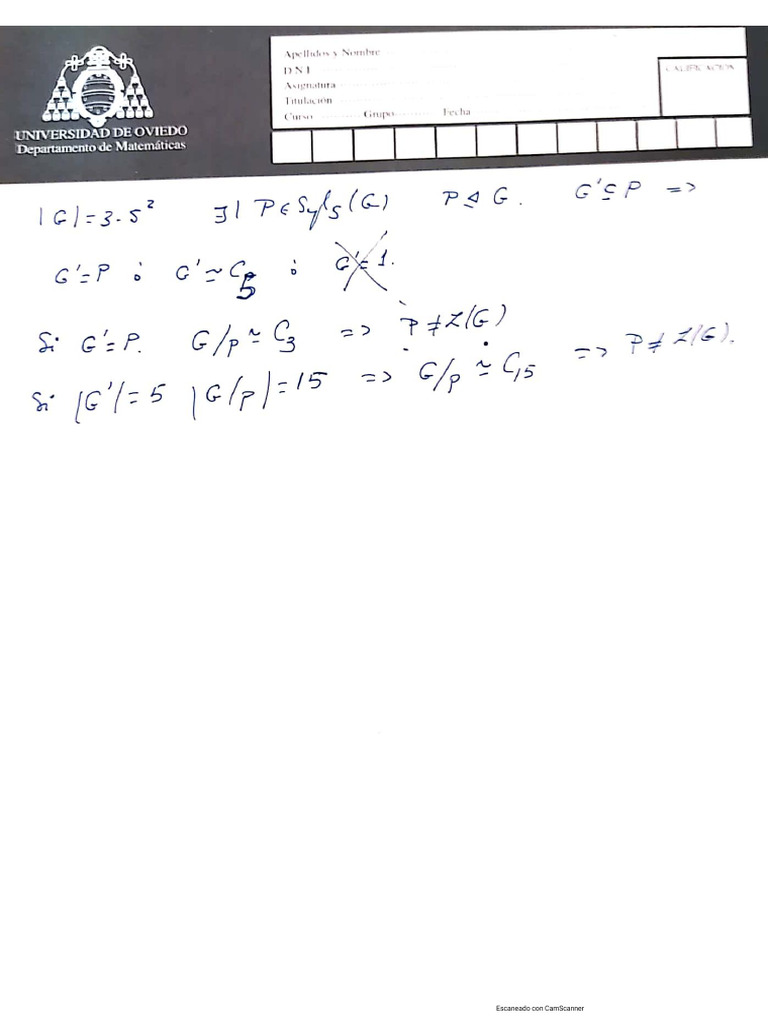 UNIVERSIDAD DE OVIEDO
Departamento de Matemáticas
Apellidos y Nombre
D N I
Asignatura
Titulación
Curso Grupo Fecha
CALIFICACIÓN
|G| = 3·5² ∃| P ∈ Syl₅(G) P ⊴ G. G' ⊆ P =>
G' = P ó G' ≃ C₅ ó G' = 1.
Si G' = P. G/P ≃ C₃ => P ≠ Z(G)
Si |G'| = 5 |G/P| = 15 => G/P ≃ C₁₅ => P ≠ Z(G).
Escaneado con CamScanner